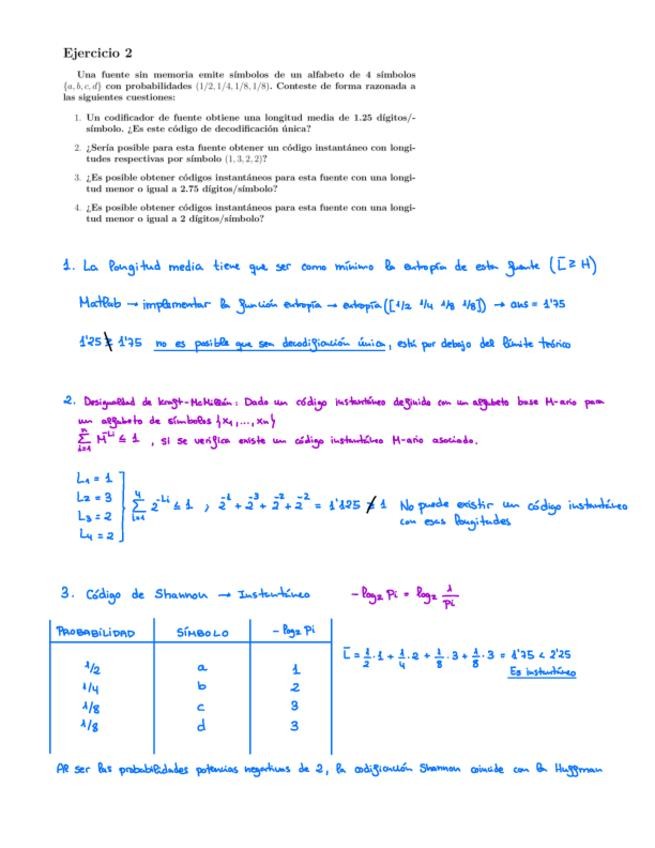 Ejercicio 2
Una fuente sin memoria emite símbolos de un alfabeto de 4 símbolos
{a, b, c, d} con probabilidades (1/2, 1/4, 1/8, 1/8). Conteste de forma razonada a
las siguientes cuestiones:
1. Un codificador de fuente obtiene una longitud media de 1.25 dígitos/-
símbolo. ¿Es este código de decodificación única?
2. ¿Sería posible para esta fuente obtener un código instantáneo con longi-
tudes respectivas por símbolo (1, 3, 2, 2)?
3. ¿Es posible obtener códigos instantáneos para esta fuente con una longi-
tud menor o igual a 2.75 dígitos/símbolo?
4. ¿Es posible obtener códigos instantáneos para esta fuente con una longi-
tud menor o igual a 2 dígitos/símbolo?
1. La longitud media tiene que ser como mínimo la entropía de esta fuente (L̄ ≥ H)
Matlab → implementar la función entropía → entropía([1/2 1/4 1/8 1/8]) → ans = 1'75
1'25 ≱ 1'75 no es posible que sea decodificación única, está por debajo del límite teórico
2. Desigualdad de Kraft-McMillan: Dado un código instantáneo definido con un alfabeto base M-ario para
un alfabeto de símbolos {x₁, ..., xₙ}
∑ᵢ₌₁ⁿ M^-Li ≤ 1 , si se verifica existe un código instantáneo M-ario asociado.
L₁ = 1
L₂ = 3
L₃ = 2
L₄ = 2
∑ᵢ₌₁⁴ 2^-Li ≤ 1 , 2⁻¹ + 2⁻³ + 2⁻² + 2⁻² = 1'125 ≰ 1 No puede existir un código instantáneo
con esas longitudes
3. Código de Shannon → Instantáneo - log₂ Pi = log₂ 1/Pi
PROBABILIDAD SÍMBOLO - log₂ Pi
1/2 a 1
1/4 b 2
1/8 c 3
1/8 d 3
L̄ = 1/2 · 1 + 1/4 · 2 + 1/8 · 3 + 1/8 · 3 = 1'75 < 2'25
Es instantáneo
Al ser las probabilidades potencias negativas de 2, la codificación Shannon coincide con la Huffman